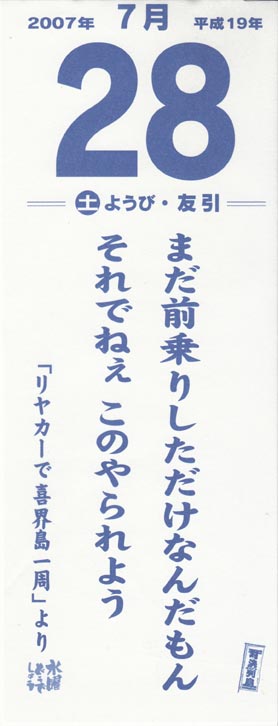 2007年 7月 平成19年
28
土 ようび・友引
まだ前乗りしただけなんだもん
それでねぇ このやられよう
「リヤカーで喜界島一周」より
水曜どうでしょう